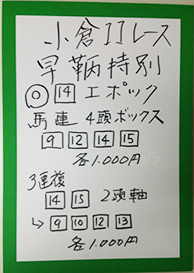 小倉11レース
早鞆特別
◎ 14 エポック
馬連 4頭ボックス
9 12 14 15
各1.000円
3連複
14 15 2頭軸
↳ 9 10 12 13
各1.000円